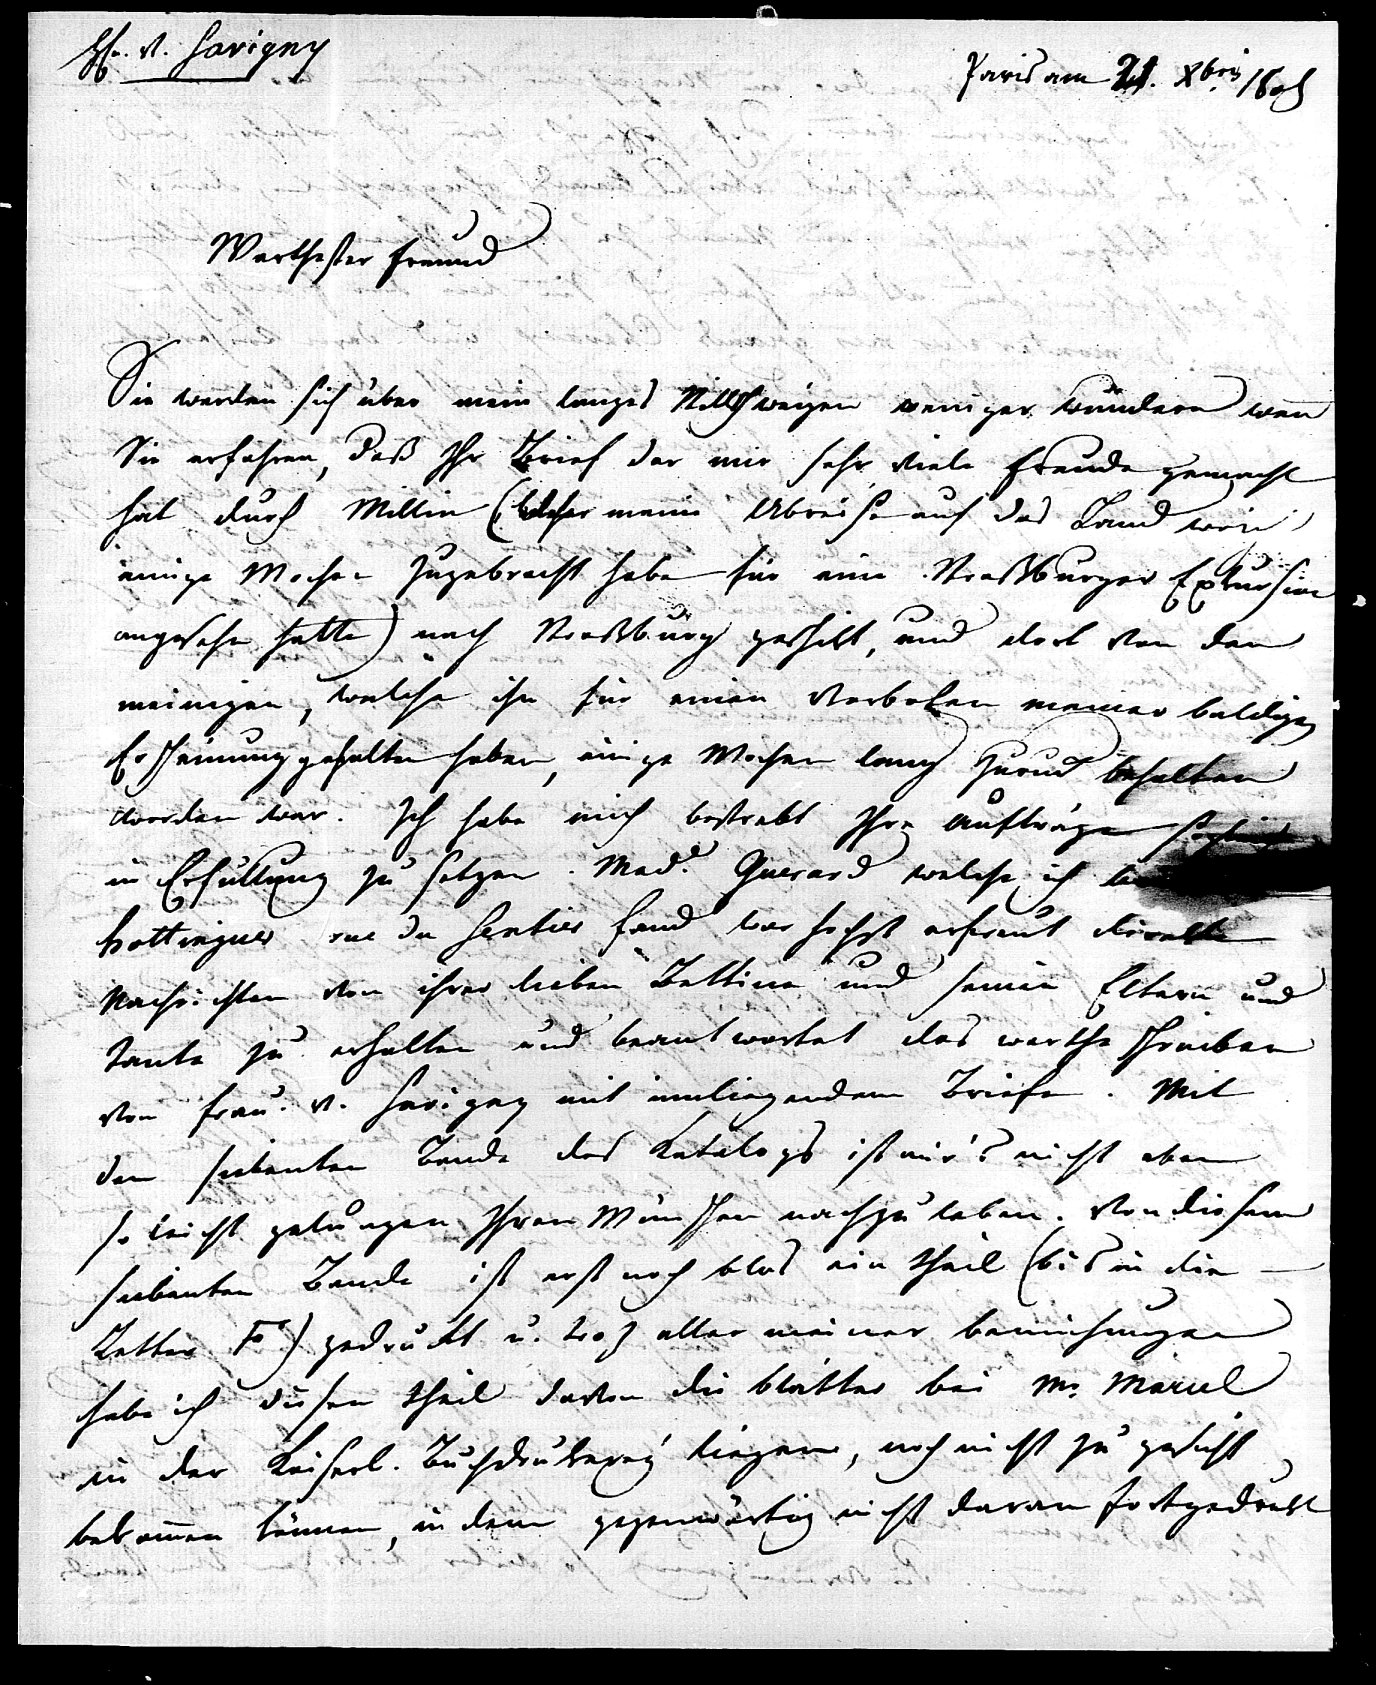 H. v. Savigny
Paris am 21. Xbris 1808
Werthester Freund
Sie werden sich über mein langes Stillschweigen weniger wundern wenn
Sie erfahren, daß Ihr Brief der mir sehr viele Freude gemacht
hat durch Millin (welcher meine Abreise auf das Land wo ich
einige Wochen zugebracht habe für eine Straßburger Exkursion
angesehn hatte) nach Straßburg geschikt, und dort von den
meinigen, welche ihn für einen Vorboten meiner baldigen
Erscheinung gehalten haben, einige Wochen lang zurück behalten
worden war. Ich habe mich bestrebt Ihre Aufträge
in Erfüllung zu setzen. Made. Guerard welche ich
hottinguer rue du Sentier fand war höchst erfreut direkte
Nachrichten von ihrer lieben Bettine und seinen Eltern und
Tante zu erhalten und beantwortet das werthe Schreiben
von Frau v. Savigny mit innliegendem Briefe. Mit
dem siebenten Bande des Katalogs ist mir's nicht eben
so leicht gelungen Ihren Wünschen nachzuleben. Von diesem
siebenten Bande ist erst noch blos ein Theil (bis in die
Letter F) gedrukt u. troz aller meiner bemühungen
habe ich diesen Theil davon die blätter bei Mr. Marcel
in der Kaiserl. Buchdrukerey liegen, noch nicht zu gesicht
bekommen können, in dem gegenwärtig nicht daran fortgedrukt